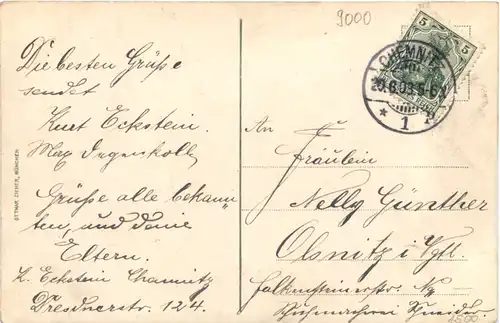 9000
Die besten Grüße
sendet
Kurt Eckstein.
Max Irgenkoll
Grüße alle bekann-
ten, und deine
Eltern.
K. Eckstein Chemnitz
Dresdnerstr. 124.
OTTMAR ZIEHER, MÜNCHEN
5 5
CHEMNITZ
20.8.03.5-6N.
* 1 P
An
Fräulein
Nelly Günther
Olsnitz i/Vgtl.
Falkensteinerstr.
Schneider.